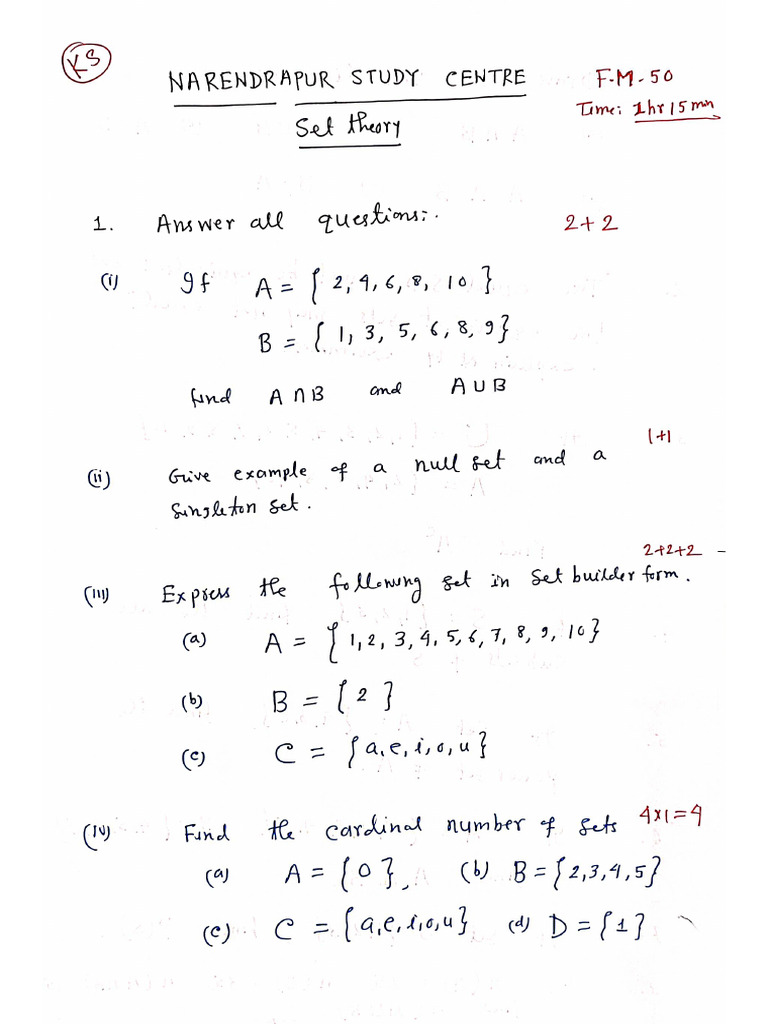 KS
NARENDRAPUR STUDY CENTRE F.M-50
Time: 1hr 15 min
Set theory
1. Answer all questions:. 2+2
(i) If A = { 2, 4, 6, 8, 10 }
B = { 1, 3, 5, 6, 8, 9}
find A ∩ B and A ∪ B
(ii) Give example of a null set and a 1+1
Singleton set.
(iii) Express the following set in set builder form. 2+2+2
(a) A = { 1, 2, 3, 4, 5, 6, 7, 8, 9, 10}
(b) B = { 2 }
(c) C = {a, e, i, o, u}
(iv) Find the cardinal number of sets 4×1=4
(a) A = {0}, (b) B = {2,3,4,5}
(c) C = {a, e, i, o, u} (d) D = {1}